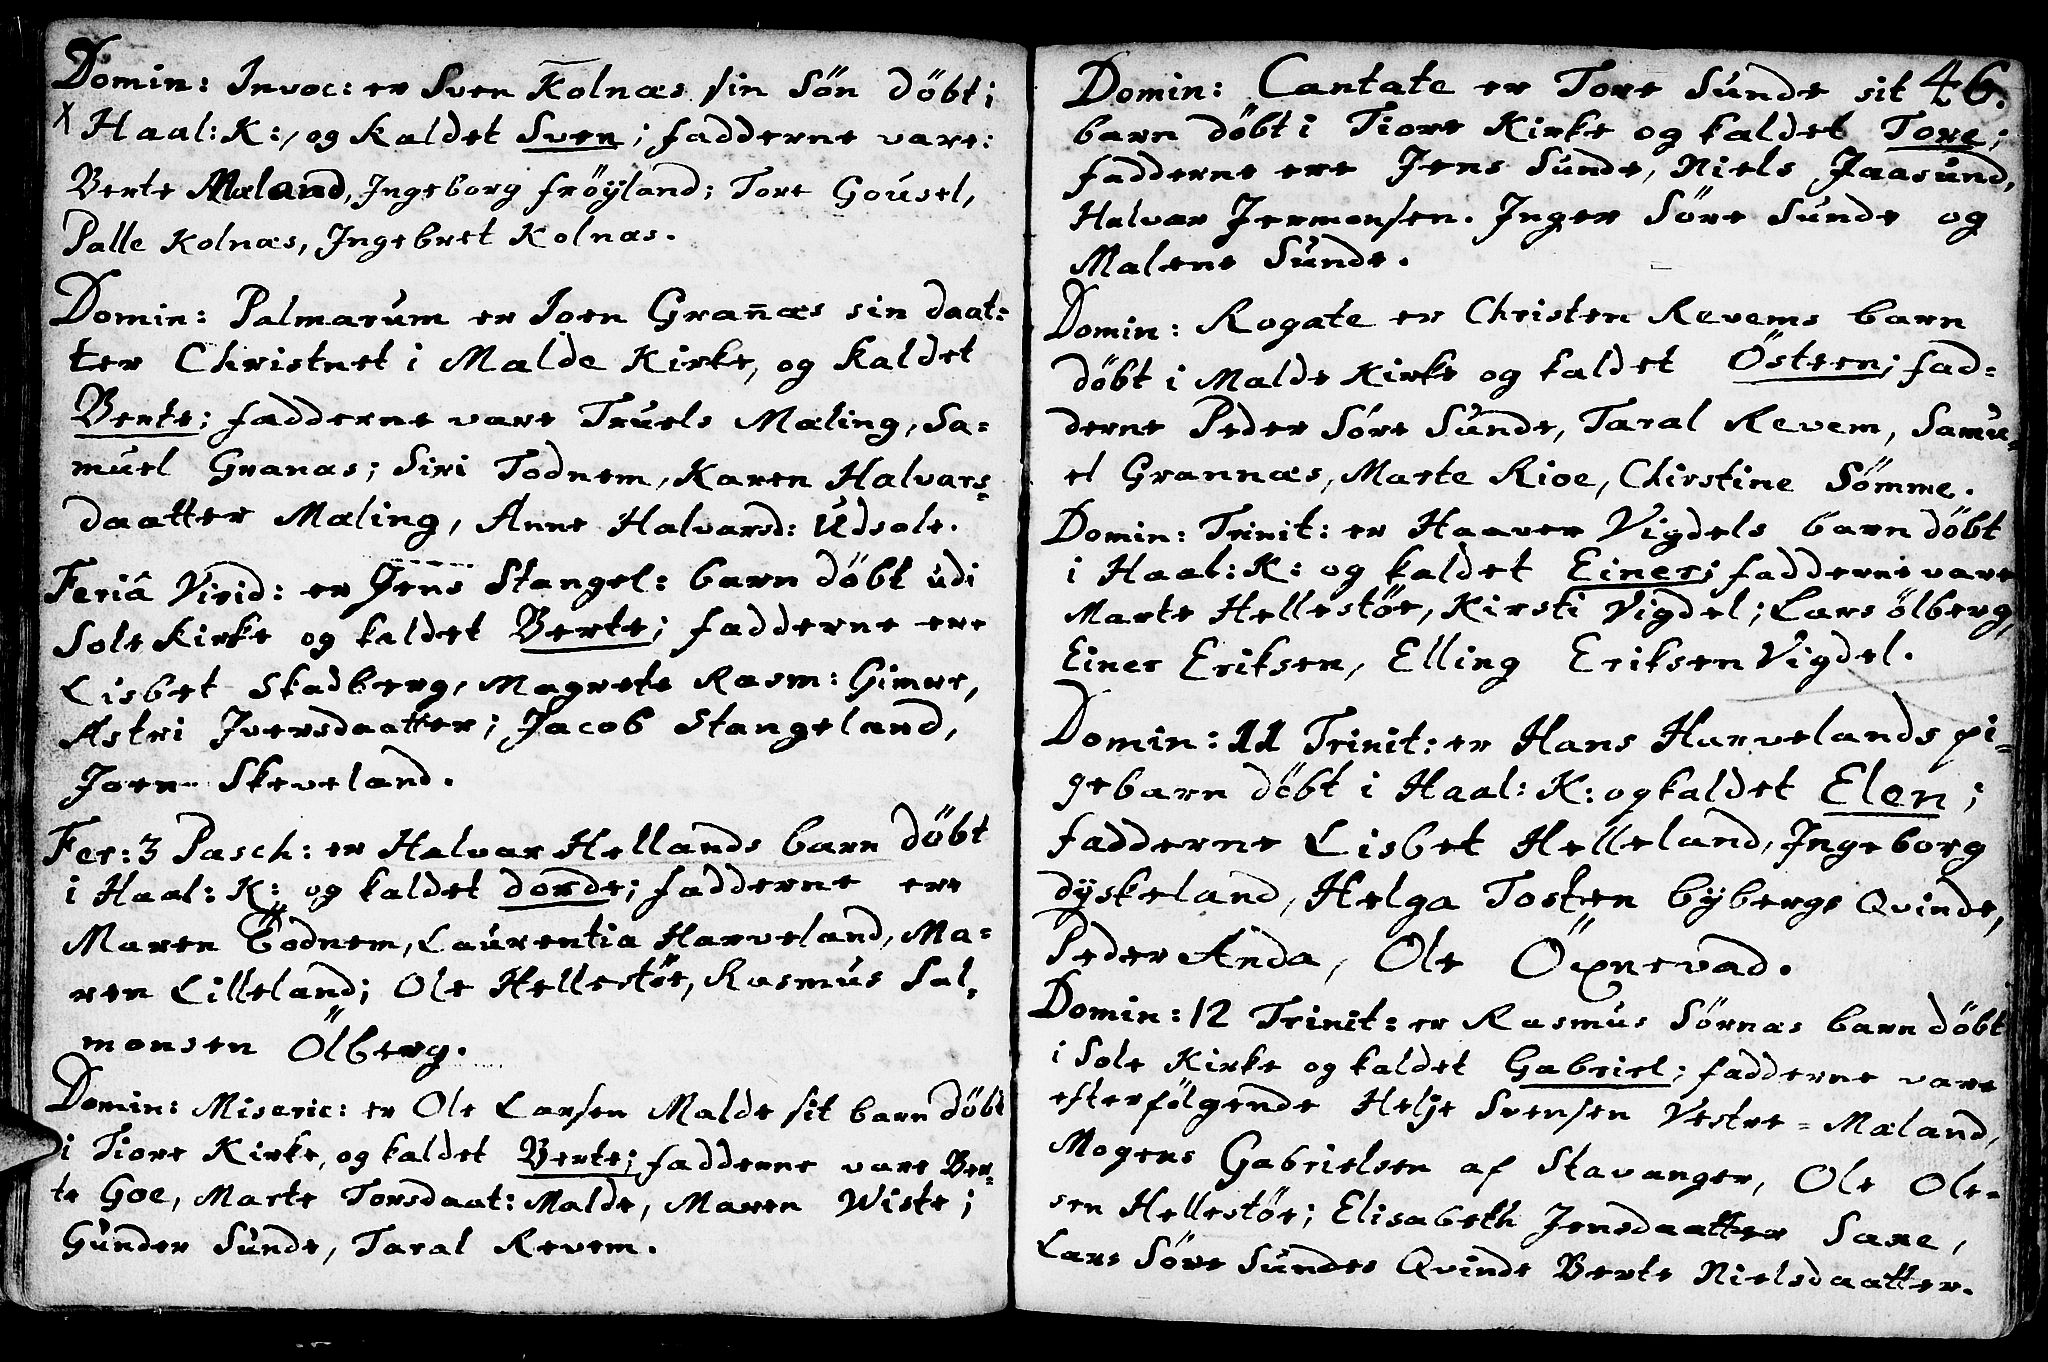 Domin: Invoc: er Sven Kolnæs sin Sön döbt i
X Haal: K:, og kaldet Sven; fadderne vare:
Berte Mæland, Ingeborg fröÿland; Tore Gousel,
Palle Kolnæs, Ingebret Kolnæs.
Domin: Palmarum er Joen Gran̄æs sin daat:
ter Christnet i Malde Kirke, og kaldet
Berte; fadderne vare Truels Mæling, Sa=
muel Granæs; Siri Todnem, Karen Halvars=
daatter Mæling, Anne Halvarsd: Udsole.
Feriâ Virid: er Jens Stangel: barn döbt udi
Sole Kirke og kaldet Berte; fadderne ere
Lisbet Skadberg, Magrete Rasm: Gimre,
Astri Iversdaatter; Jacob Stangeland,
Joen Skeveland.
Fer: 3 Pasch: er Halvar Hellands barn döbt
i Haal: K: og kaldet dorde; fadderne ere
Maren Todnem, Laurentia Harveland, Ma=
ren Lilleland; Ole Hellestöe, Rasmus Sal,
monsen Ölberg.
Domin: Miseric: er Ole Larsen Malde sit barn döbt
i Tiore Kirke, og kaldet Berte; fadderne vare Ber=
te Goe, Marte Torsdaat: Malde, Maren Wiste;
Gunder Sunde, Taral Revem.
Domin: Cantate er Tore Sunde sit 46.
barn döbt i Tiore Kirke og kaldet Tore;
fadderne ere Jens Sunde, Niels Jaasund,
Halvar Jermonsen. Inger Söre Sunde og
Malene Sunde.
Domin: Rogate er Christen Revems barn
döbt i Malde Kirke og kaldet Östeen; fad=
derne Peder Söre Sunde, Taral Revem, Samu=
el Grannæs, Marte Rioe, Chirstine Sömme.
Domin: Trinit: er Haaver Vigdels barn döbt
i Haal: K: og kaldet Einer; fadderne vare
Marte Hellestöe, Kirsti Vigdel; Lars ölberg,
Einer Eriksen, Elling Eriksen Vigdel.
Domin: 11 Trinit: er Hans Harvelands pi=
gebarn döbt i Haal: K: og kaldet Elen;
fadderne Lisbet Helleland, Ingeborg
dÿskeland, Helga Tosten bÿbergs Qvinde,
Peder Anda, Ole Öxnevad.
Domin: 12 Trinit: er Rasmus Sörnæs barn döbt
i Sole Kirke og kaldet Gabriel; fadderne vare
efterfölgende Helje Svensen Vestre=Mæland,
Mogens Gabrielsen af Stavanger, Ole Ole=
sen Hellestöe; Elisabeth Jensdaatter Saxe,
Lars Söre Sundes Qvinde Berte Nielsdaatter.